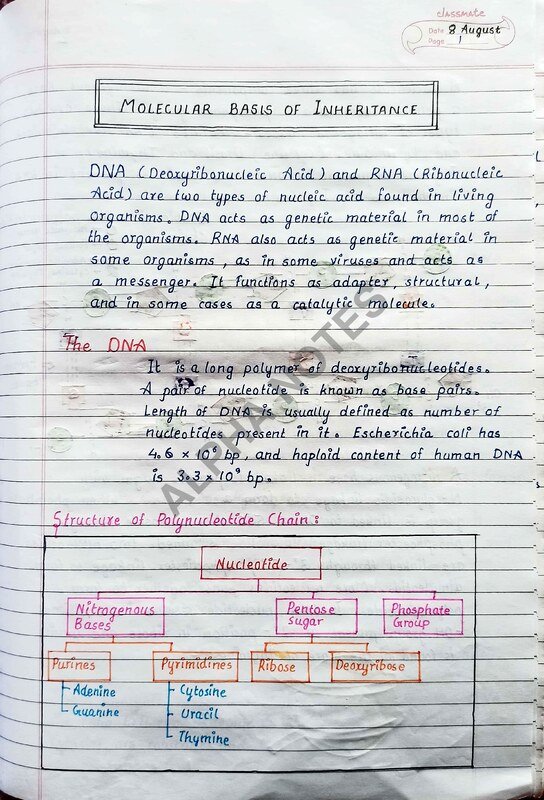 classmate
Date 8 August
Page 1
MOLECULAR BASIS OF INHERITANCE
DNA (Deoxyribonucleic Acid) and RNA (Ribonucleic
Acid) are two types of nucleic acid found in living
organisms. DNA acts as genetic material in most of
the organisms. RNA also acts as genetic material in
some organisms, as in some viruses and acts as
a messenger. It functions as adapter, structural,
and in some cases as a catalytic molecule.
The DNA
It is a long polymer of deoxyribonucleotides.
A pair of nucleotide is known as base pairs.
Length of DNA is usually defined as number of
nucleotides present in it. Escherichia coli has
4.6 × 10⁶ bp, and haploid content of human DNA
is 3.3 × 10⁹ bp.
ALPHA NOTES
Structure of Polynucleotide Chain:
Nucleotide
Nitrogenous Bases
Pentose sugar
Phosphate Group
Purines
Pyrimidines
Ribose
Deoxyribose
Adenine
Guanine
Cytosine
Uracil
Thymine